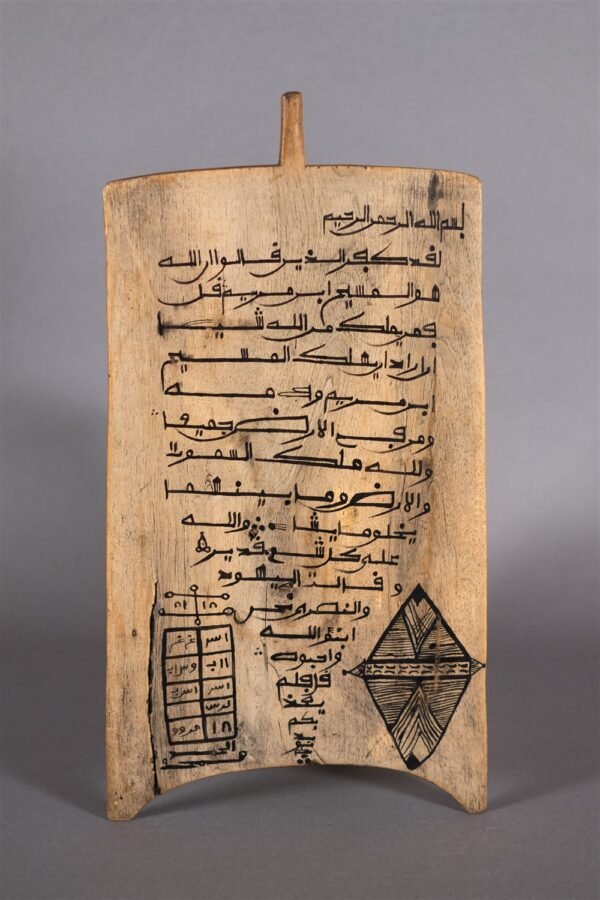 بسم الله الرحمن الرحيم
لقد كفر الذين قالوا ان الله
هو المسيح ابن مريم قل
فمن يملك من الله شيئا
ان اراد ان يهلك المسيح
ابن مريم وامه
ومن في الارض جميعا
ولله ملك السموات
والارض وما بينهما
يخلق ما يشاء والله
على كل شيء قدير
وقالت اليهود
والنصرى نحن
ابنؤا الله
واحبوه
قل فلم
يعذ
بكم